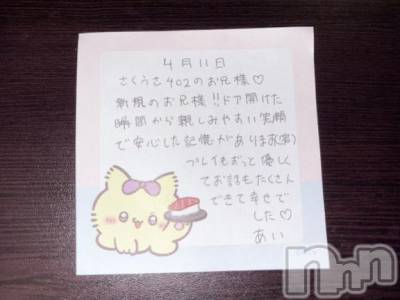 4月11日
さくらさ402のお兄様♡
新規のお兄様!!ドア開けた
瞬間から親しみやすい笑顔
で安心した記憶があります(笑)
プレイもずっと優しく
てお話もたくさん
できて幸せで
した♡
あい
nnn